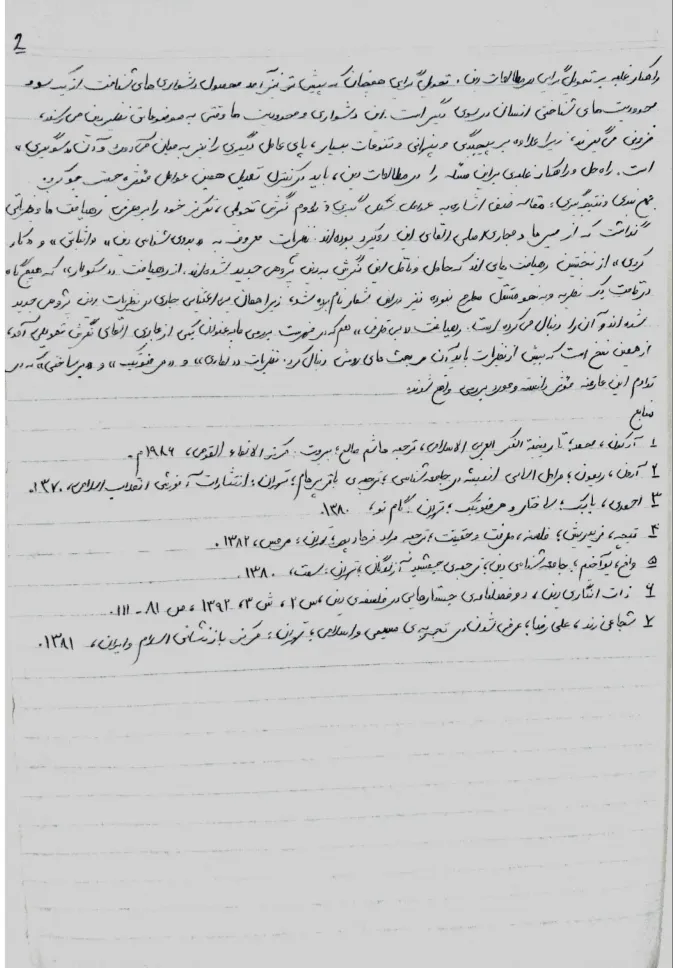 2
راهکار غلبه بر تحویل‌گرایی در مطالعات دین: تحویل گرایی همچنان که پیش تر نیز آمد محصول دشواری های شناخت از یک سو و
محدودیت های شناختی انسان از سوی دیگر است. این دشواری و محدودیت ها وقتی به موضوعاتی نظیر دین می رسند،
فزونی می گیرند، زیرا علاوه بر پیچیدگی و تنوعات بسیار، پای عامل دیگری را نیز به میان می آورد و آن «سوگیری»
است. راه حل و راهکار غلبه بر این مسئله را در مطالعات دین، باید در کنترل تعدیل همین عوامل جست جو کرد.
جمع بندی و نتیجه گیری: مقاله ضمن اشاره به عوامل شکل گیری و تداوم نگرش تحولی، تمرکز خود را بر معرفی رهیافت ها و نظریاتی
گذاشت که از مسیرها و مجاری اصلی القای این رویکرد بوده اند. نظریات معروف به «روان شناسی دین» و «کار
کردی» از نخستین رهیافت هایی اند که حامل و ناقل این نگرش به دین پژوهی جدید شده اند. از رهیافت «سکولار» که هیچ گاه
در قامت یک نظریه و به نحو مستقل مطرح نبوده نیز در این شمار نام برده شد، زیرا اعمال بی اعتنایی جاری در نظریات دین پژوهی جدید
شده اند و آن را دنبال می کرده است. رهیافت «بی طرفی» هم که در فهرست بررسی ما به عنوان یکی از مجاری القای نگرش تحویلی آمد،
از همین سنخ است که بیش از نظریات باید آن را در بحث های روش دنبال کرد. نظریات «گوهری» و «هرمنوتیک» و «برساختی» که در
تداوم این عارضه مؤثر دانسته و مورد بررسی واقع شدند.
منابع
۱ آرکون، محمد؛ تاریخیة الفکر العربی الاسلامی، ترجمه هاشم صالح؛ بیروت: مرکز الانماء القومی، ۱۹۸۶م.
۲ آرون، ریمون؛ مراحل اساسی اندیشه در جامعه شناسی؛ ترجمه ی باقر پرهام؛ تهران: انتشارات آموزش انقلاب اسلامی، ۱۳۷۰.
۳ احمدی، بابک؛ ساختار و هرمنوتیک؛ تهران: گام نو، ۱۳۸۰.
۴ نیچه، فریدریش؛ فلسفه، معرفت و حقیقت؛ ترجمه مراد فرهادپور؛ تهران: هرمس، ۱۳۸۲.
۵ واخ، یوآخیم؛ جامعه شناسی دین؛ ترجمه ی جمشید آزادگان؛ تهران: سمت، ۱۳۸۰.
۶ ذات انگاری دین، دو فصلنامه ی جستارهایی در فلسفه ی دین، س ۲، ش ۳، ۱۳۹۲، ص ۸۱ - ۱۱۱.
۷ شجاعی زند، علی رضا؛ عرفی شدن در تجربه ی مسیحی و اسلامی؛ تهران: مرکز بازشناسی اسلام و ایران، ۱۳۸۱.